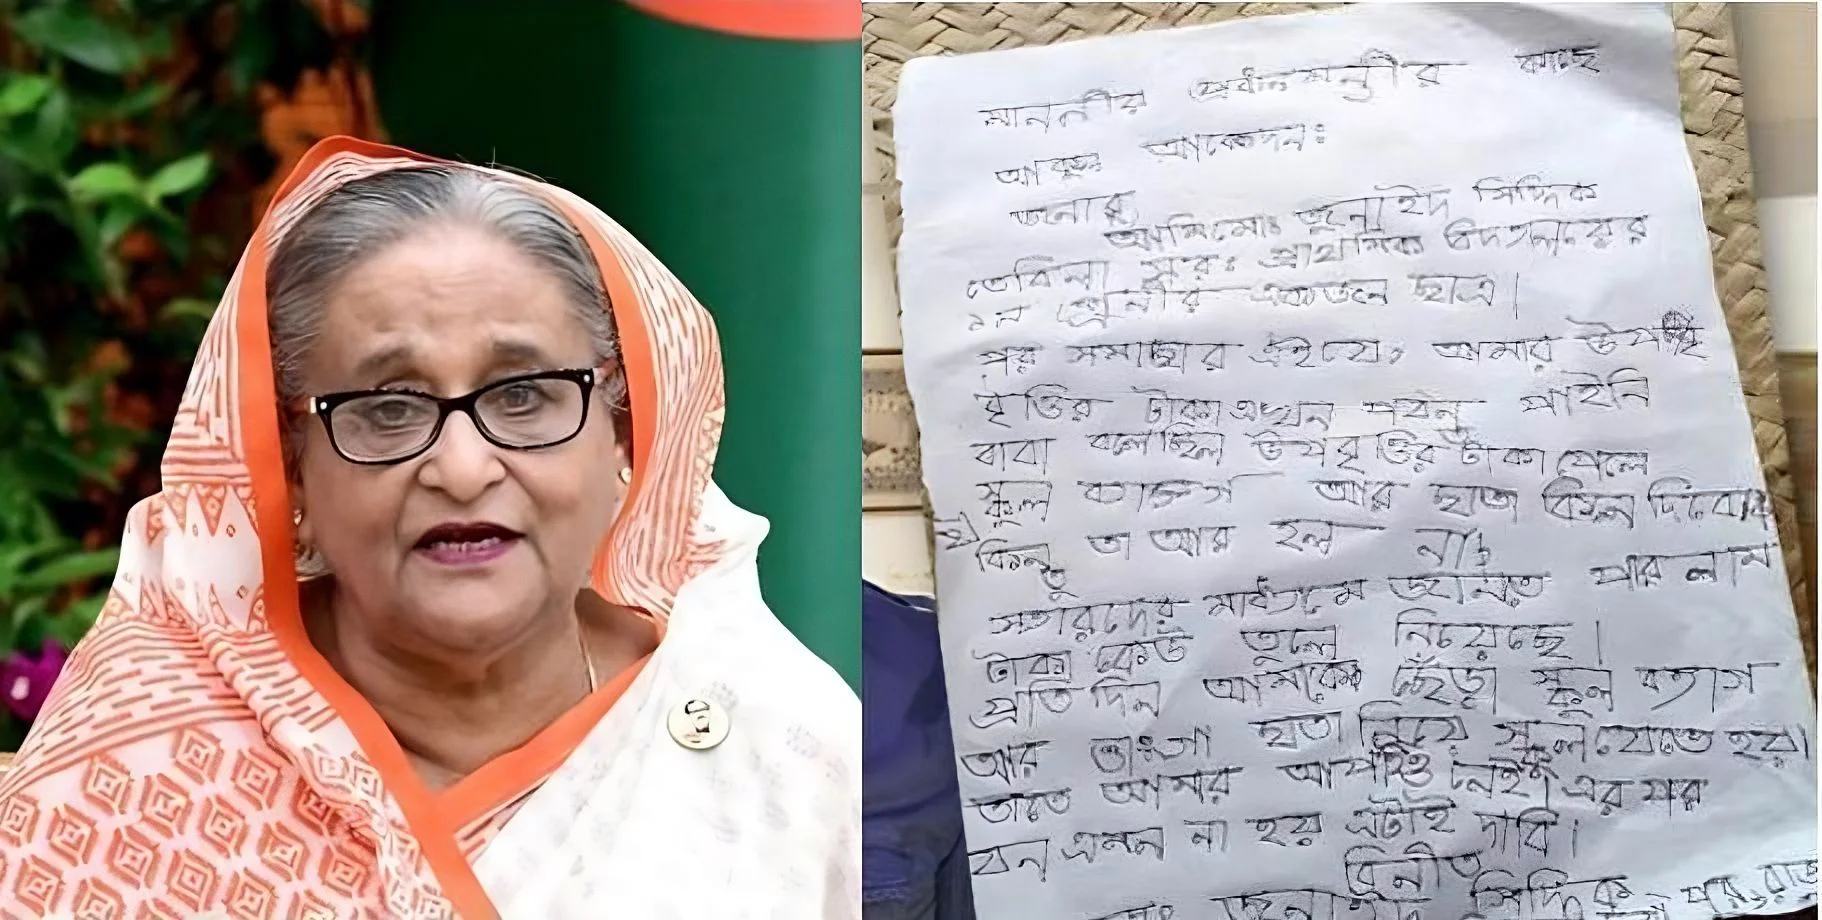 মাননীয় প্রধানমন্ত্রীর কাছে
আকুল আবেদন:
জনাব
আমি মো: জুনাইদ সিদ্দিক
তেবিলা সর: প্রাথমিক বিদ্যালয়ের
১ম শ্রেনীর একজন ছাত্র।
পর সমাচার এই যে, আমার উপ
বৃত্তির টাকা এখন পাইনি
বাবা বলেছিল উপবৃত্তির টাকা পেলে
স্কুল ব্যাগ আর ছাতা কিনে দিবো
কিন্তু তা আর হল না।
স্যারদের মাধ্যমে জানতে পারলাম
টাকা কেউ তুলে নিয়েছে।
প্রতি দিন আমাকে ছেঁড়া স্কুল ব্যাগ
আর ভাংগা ছাতা নিয়ে স্কুলে যেতে হয়।
তাতে আমার আপত্তি নেই। এর পর
যেন এমন না হয় এটাই দাবি।
বিনীত
সিদ্দিক